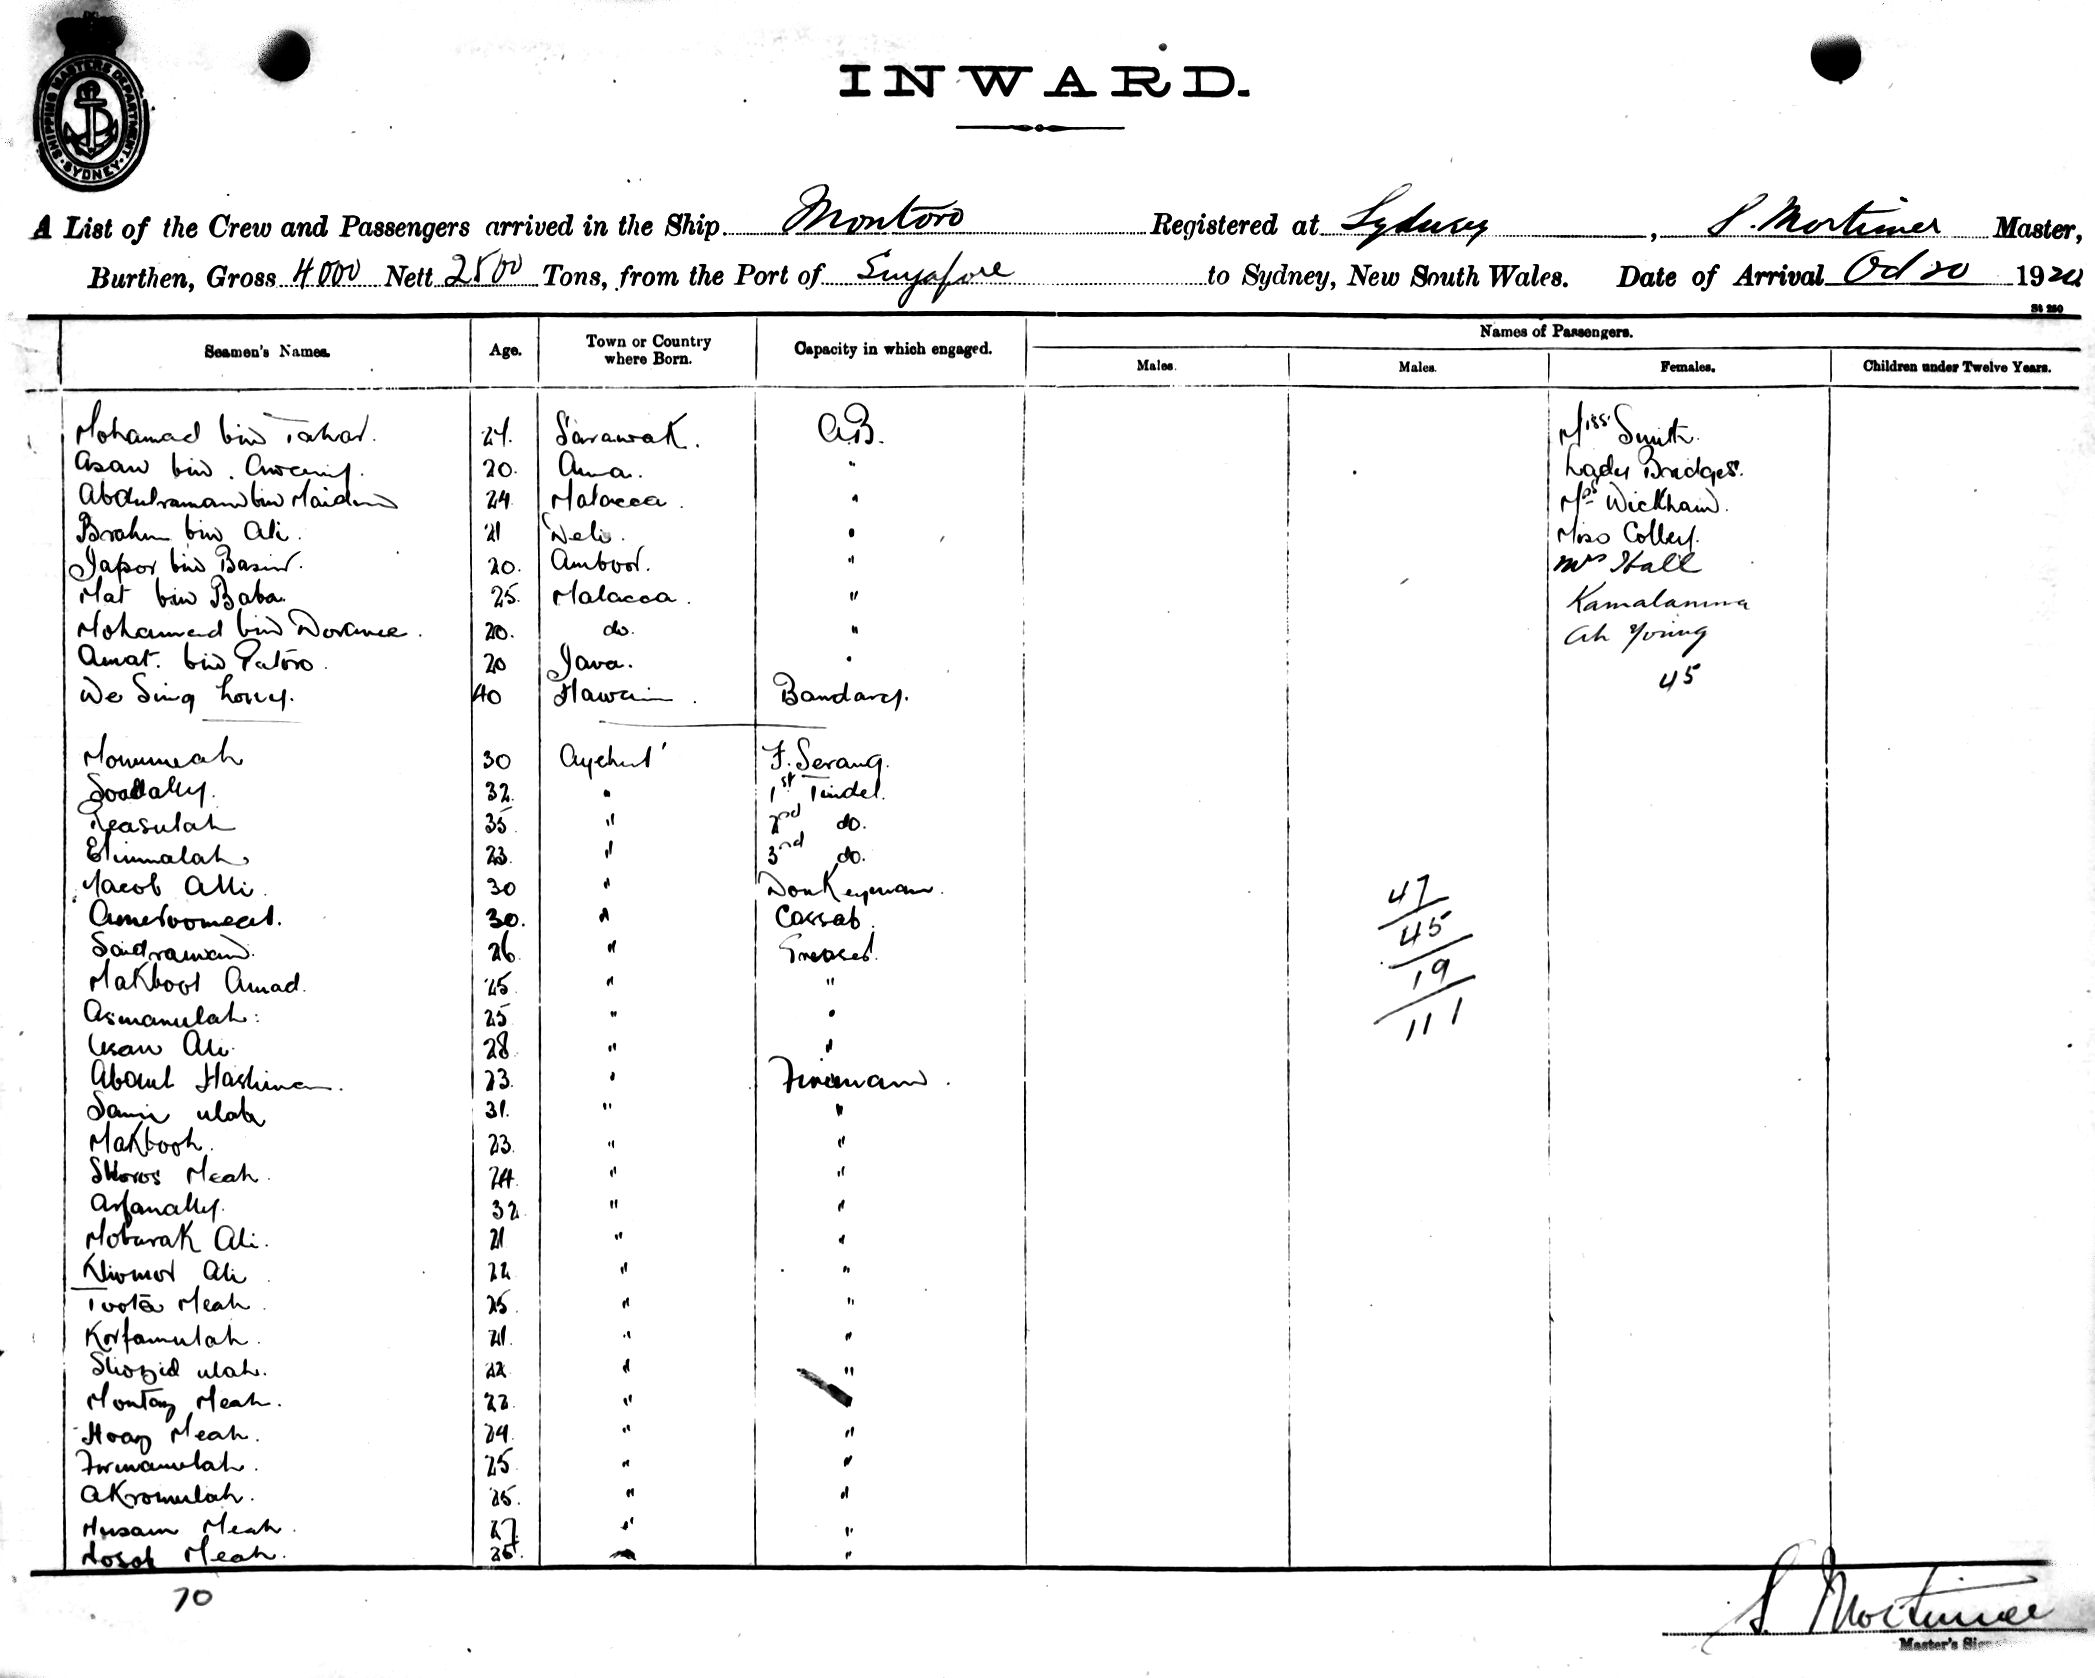 SHIPPING MASTERS DEPARTMENT
SYDNEY
INWARD.
A List of the Crew and Passengers arrived in the Ship Montoro Registered at Sydney, S. Mortimer Master,
Burthen, Gross 4000 Nett 2500 Tons, from the Port of Singapore to Sydney, New South Wales. Date of Arrival Oct 20 1920
St 250
Seamen's Names. Age. Town or Country where Born. Capacity in which engaged. Names of Passengers.
Males. Males. Females. Children under Twelve Years.
Mohamad bin Tahar. 24. Sarawak. A.B. Miss Smith.
bin 20. " Lady Bridges.
Abdulraman bin Maidin 24. Malacca. " Mrs Wickham.
Brahim bin Ali. 21 Deli. " Miss Colley.
Japar bin Basir. 20. " Mrs Hall
Mat bin Baba. 25. Malacca. " Kamalamma
Mohamed bin 20. do. " Ah Young
Amat. bin 20 Java. " 45
We Sing 40 Bandary.
30 F. Serang.
32. " 1st Tindel.
Reasulah 35 " 2nd do.
23. " 3rd do.
Yacob Alli. 30 " Donkeyman.
30. " Cassab. 47
Saidraman. 26 " Greaser. 45
Makbool Amad. 25 " " 19
Asmanulah. 25 " " 111
Usan Ali. 28 " "
Abdul 23. " Fireman.
Samir ulah 31. " "
23. " "
Meah. 24 " "
Arfanally. 32 " "
Moburak Ali. 21 " "
Ali 22 " "
Toota Meah. 25 " "
Korfamulah. 21. " "
ulah. 22 " "
Montaz Meah. 22 " "
Meah. 24 " "
25 " "
Akromulah. 25. " "
Husain Meah. 27 " "
Meah. "
70
S. Mortimer
Master's